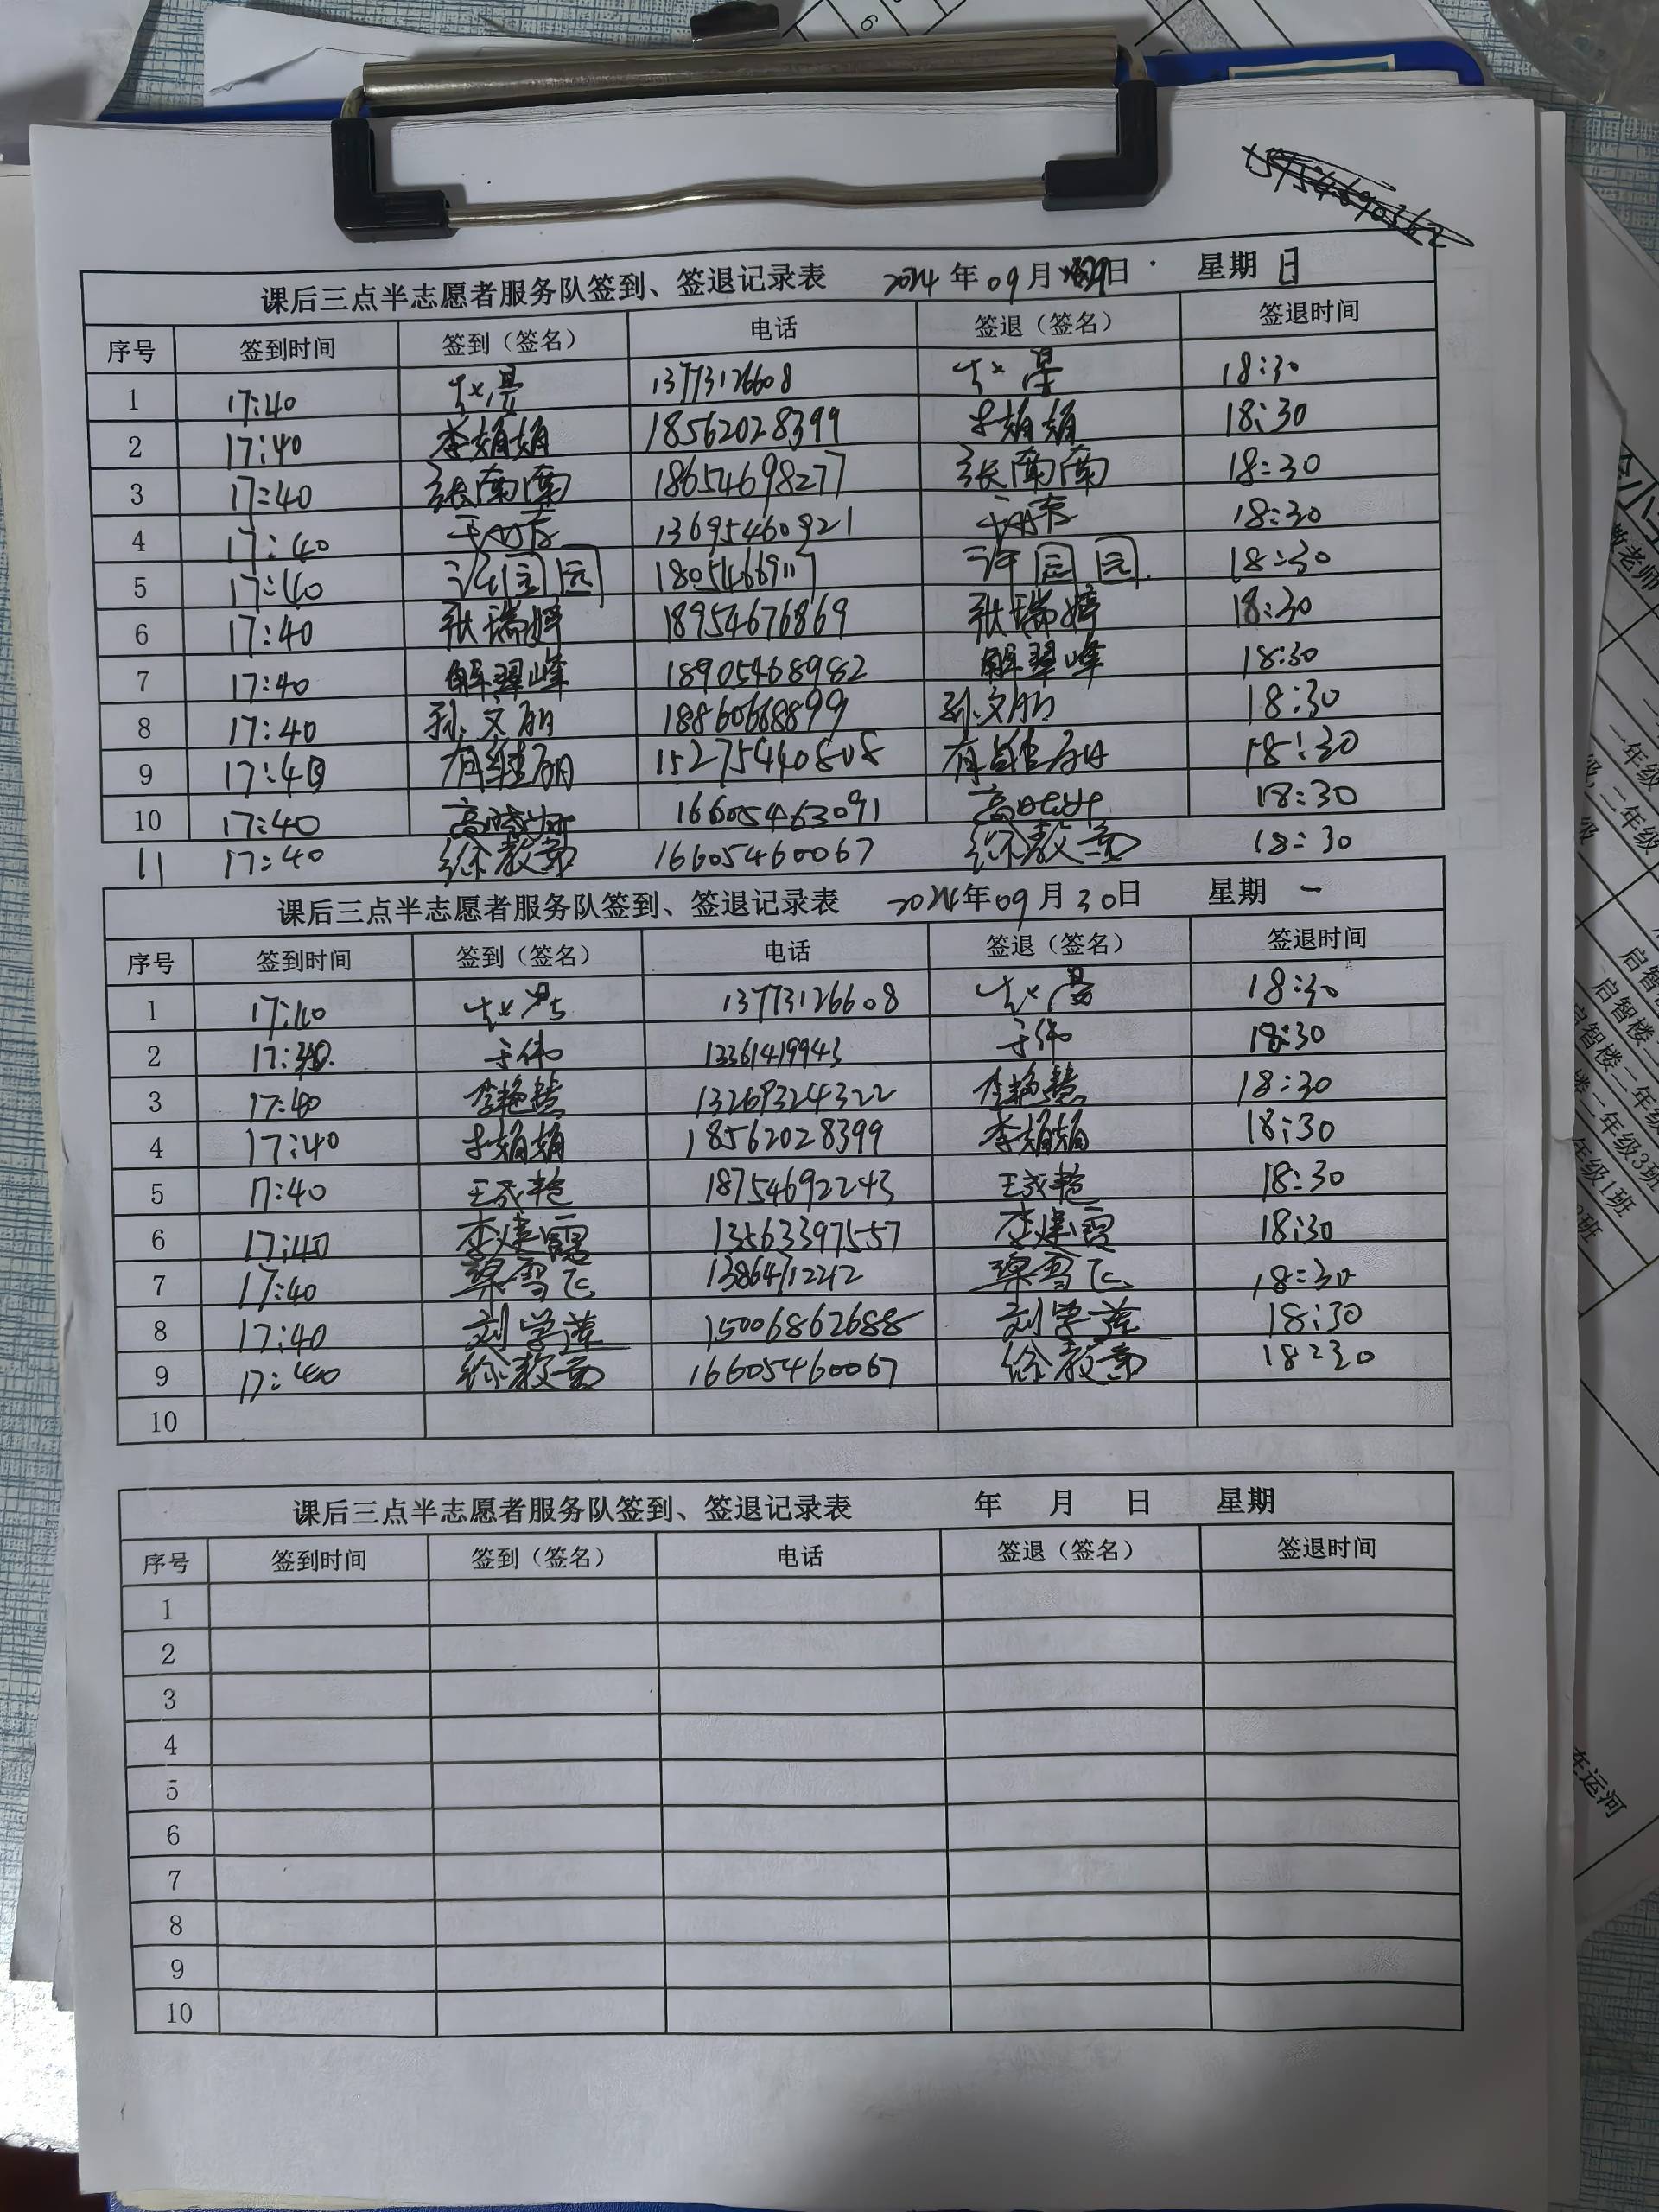 课后三点半志愿者服务队签到、签退记录表 2024年09月29日 星期日
序号 签到时间 签到（签名） 电话 签退（签名） 签退时间
1 17:40 赵昙 13773126608 赵昙 18:30
2 17:40 李娟娟 18562028399 李娟娟 18:30
3 17:40 张南南 18654698277 张南南 18:30
4 17:40 13695460921 18:30
5 17:40 许园园 18054669117 许园园 18:30
6 17:40 张瑞婷 18954676869 张瑞婷 18:30
7 17:40 解翠峰 18905468982 解翠峰 18:30
8 17:40 孙文丽 18860668899 孙文丽 18:30
9 17:40 15275440808 18:30
10 17:40 16605463091 18:30
11 17:40 徐教章 16605460067 徐教章 18:30
课后三点半志愿者服务队签到、签退记录表 2024年09月30日 星期一
序号 签到时间 签到（签名） 电话 签退（签名） 签退时间
1 17:40 赵昙 13773126608 赵昙 18:30
2 17:40 于伟 13361419943 于伟 18:30
3 17:40 李艳慧 李艳慧 18:30
4 17:40 李娟娟 18562028399 李娟娟 18:30
5 17:40 王成艳 18754692243 王成艳 18:30
6 17:40 李建霞 13563397557 李建霞 18:30
7 17:40 雪飞 雪飞 18:30
8 17:40 刘学莲 15006862688 刘学莲 18:30
9 17:40 徐教章 16605460067 徐教章 18:30
10
课后三点半志愿者服务队签到、签退记录表 年 月 日 星期
序号 签到时间 签到（签名） 电话 签退（签名） 签退时间
1
2
3
4
5
6
7
8
9
10